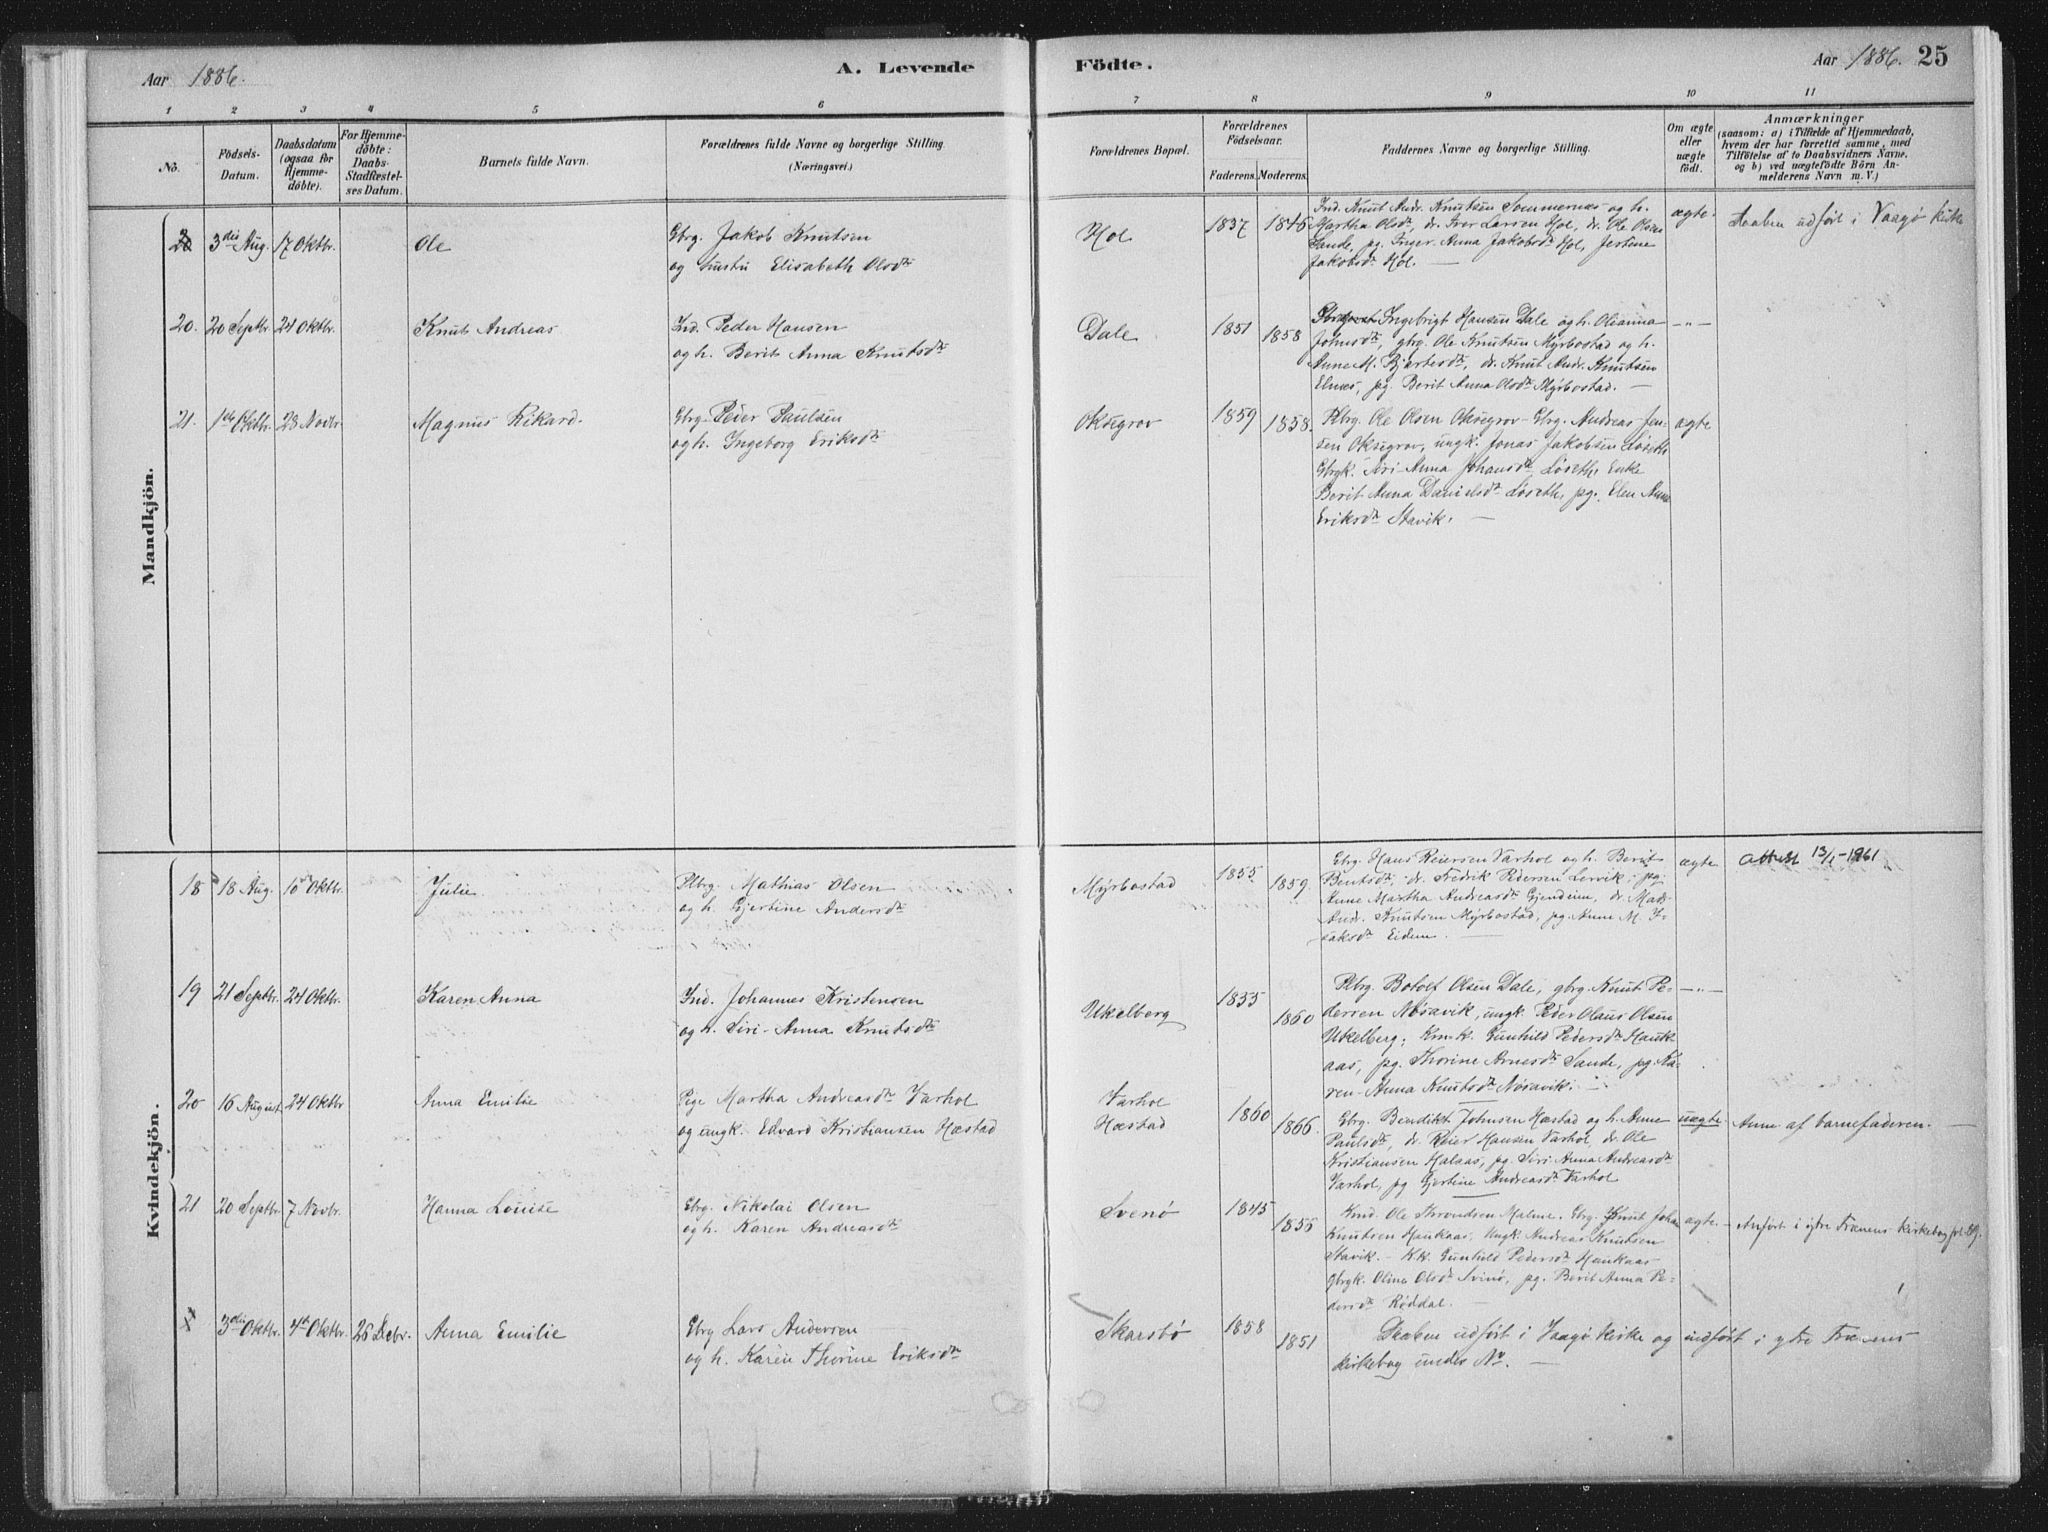 Aar 1886.
A. Levende Födte.
Aar 1886. 25
1 2 3 4 5 6 7 8 9 10 11
No.
Födsels-Datum.
Daabsdatum (ogsaa for Hjemme-döbte).
For Hjemme-döbte: Daabs-Stadfæstel-ses Datum.
Barnets fulde Navn.
Forældrenes fulde Navne og borgerlige Stilling.
(Næringsvei.)
Forældrenes Bopæl.
Forældrenes Födselsaar.
Faderens. Moderens.
Faddernes Navne og borgerlige Stilling.
Om ægte eller uægte födt.
Anmærkninger
(saasom: a) i Tilfælde af Hjemmedaab,
hvem der har forrettet samme, med
Tilföielse af to Daabsvidners Navne,
og b) ved uægtefödte Börn An-
melderens Navn m. V.)
Mandkjön.
3die Aug. 17 Oktbr. Ole
Gbrg. Jakob Knutsen
og hustru Elisabeth Olsdtr
Hol 1837 1846
Ind. Knut Andr. Knutsen Sommernes og h.
Martha Olsdtr, dr. Iver Larsen Hol, dr. Ole Olsen
Sande, pg. Inger Anna Jakobsdtr Hol, Jertine
Jakobsdtr Hol. —
ægte. Daaben udført i Vaagø kirke
20. 20 Septbr. 24 Oktbr. Knut Andreas
Ind. Peder Hansen
og h. Berit Anna Knutsdtr
Dale 1851 1858
Ingebrigt Hansen Dale og h. Olianna
Johnsdtr, gbrg. Ole Knutsen Myrbostad og h.
Anne M. Bjartesdtr, dr. Knut Andr. Knutsen
Elnes, pg. Berit Anna Olsdtr Myrbostad. —
—"—
21. 1ste Oktbr. 28 Novbr. Magnus Rikard.
Gbrg. Peder Paulsen
og h. Ingeborg Eriksdtr
Oksegrov 1859 1858.
Plbrg. Ole Olsen Oksegrov - Gbrg. Andreas Jen-
sen Oksegrov, ungk. Jonas Jakobsen Løseth,
Gbrgk. Siri Anna Johansdtr Løseth, Enke
Berit Anna Danielsdtr Løseth, pg. Elen Anna
Eriksdtr Stavik. —
ægte
Kvindekjön.
18 18 Aug. 10 Oktbr. Julie
Plbrg. Mathias Olsen
og h. Gjertine Andersdtr
Myrbostad 1855 1859.
Gbrg. Hans Reiersen Varhol og h. Berit
Bentsdtr, dr. Fredrik Pedersen Lervik, pg.
Anne Martha Andreasdtr Gjendem, dr. Mads
Andr. Knutsen Myrbostad, pg. Anne M. I-
saksdtr Eidem. —
ægte Attest 13/1-1961
19 21 Septbr. 24 Oktbr. Karen Anna
Ind. Johannes Kristensen
og h. Siri Anna Knutsdtr
Ukelberg 1855 1860
Plbrg. Botolf Olsen Dale, gbrg. Knut Pe-
dersen Nøsavik, ungk. Peder Olaus Olsen
Ukelberg, Km.k. Gunhild Pedersdtr Hauk-
aas, pg. Thorine Arnesdtr Sande, pg. Ka-
ren Anna Knutsdtr Nøsavik. —
—"—
20 16 August. 24 Oktbr Anna Emilie
Pige Martha Andreasdtr Varhol
og ungk. Edvard Kristiansen Hæstad
Varhol
Hæstad
1860 1866.
Gbrg. Bendikt Johnsen Hæstad og h. Anne
Paulsdtr, dr. Reier Hansen Varhol, dr. Ole
Kristiansen Malaas, pg. Siri Anna Andreasdtr
Varhol, pg Gjertine Andreasdtr Varhol
uægte. Anm. af barnefaderen. —
21 20 Septbr. 7 Novbr. Hanna Louise
Gbrg. Nikolai Olsen
og h. Karen Andreasdtr
Svenø 1845 1855
Ole Throndsen Malme. Gbrg. Knut Johan
Knutsen Haukaas, Ungk. Andreas Knutsen
Stavik. - Kk. Gunhild Pedersdtr Haukaas
gbrgk. Olina Olsdtr Svinø, pg. Berit Anna Pe-
dersdtr Røddal. —
ægte. - Anført i ytre Frænens kirkebog
3die Oktbr. 4de Oktbr. 26 Debr. Anna Emilie
Gbrg Lars Andersen
og h. Karen Thorine Eriksdtr
Skarsbø 1858 1851
Daaben udført i Vaagø kirke og indført i ytre Frænens
kirkebog under No. —